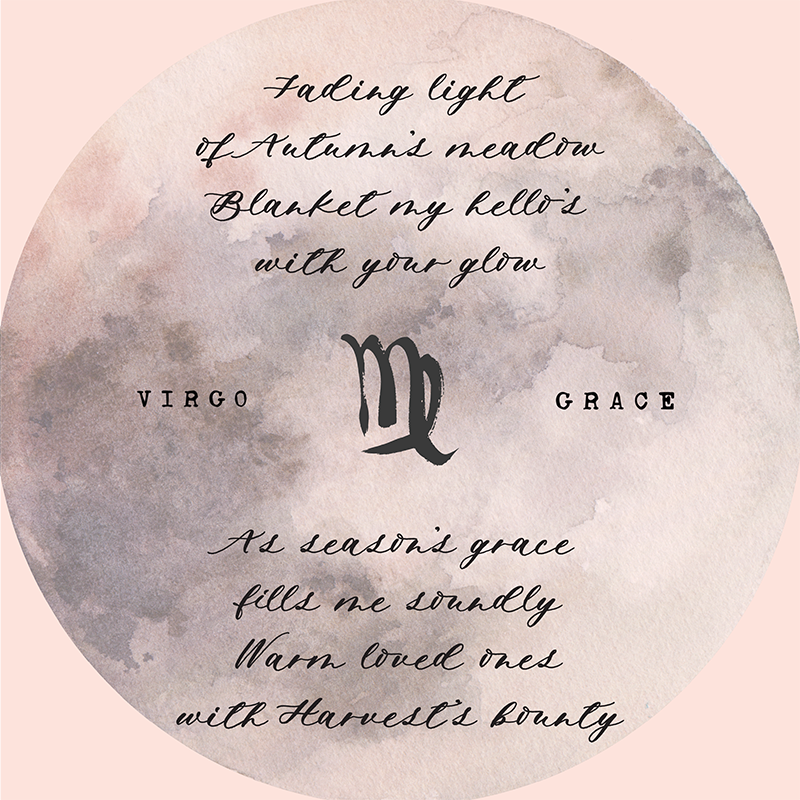 Fading light
of Autumn's meadow
Blanket my hello's
with your glow
VIRGO GRACE
As season's grace
fills me soundly
Warm loved ones
with Harvest's bounty